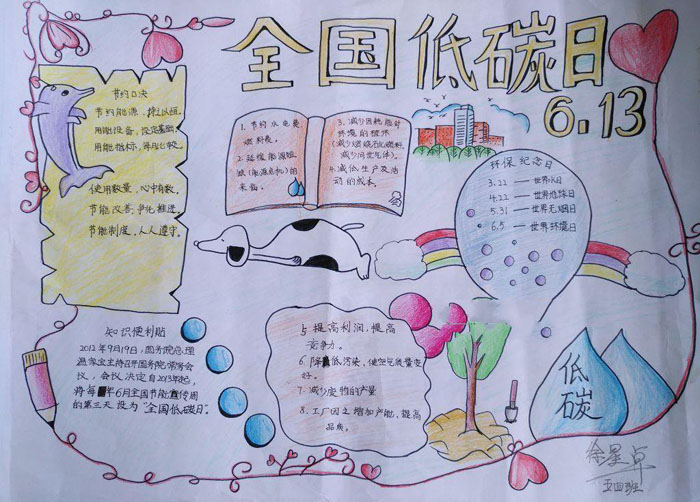 全国低碳日
6.13
节约口决
节约能源，
用能设备，设定基础
用能指标，
使用数量，心中有数。
节能改善，争化推进。
节能制度，人人遵守。
1. 节约水电费
燃料费。
2. 延缓能源短
缺（能源危机）的
来临。
3. 减少因耗能对
环境的破坏
(减少燃烧石化燃料，
减少间世气体）。
4. 减低生产及活
动的成本。
环保纪念日
3.22 — 世界水日
4.22 — 世界地球日
5.31 — 世界无烟日
6.5 — 世界环境日
知识便利贴
2012年9月19日，国务院总理
温家宝主持召开国务院常务会
议，会议决定自2013年起，
将每年6月全国节能宣传周
的第三天设为“全国低碳日”。
5. 提高利润，提高
竞争力。
6. 降低污染，使空气质量变
好。
7. 减少废物的产量
8. 工厂因之增加产能，提高
品质。
低
碳
徐星卓
五四班